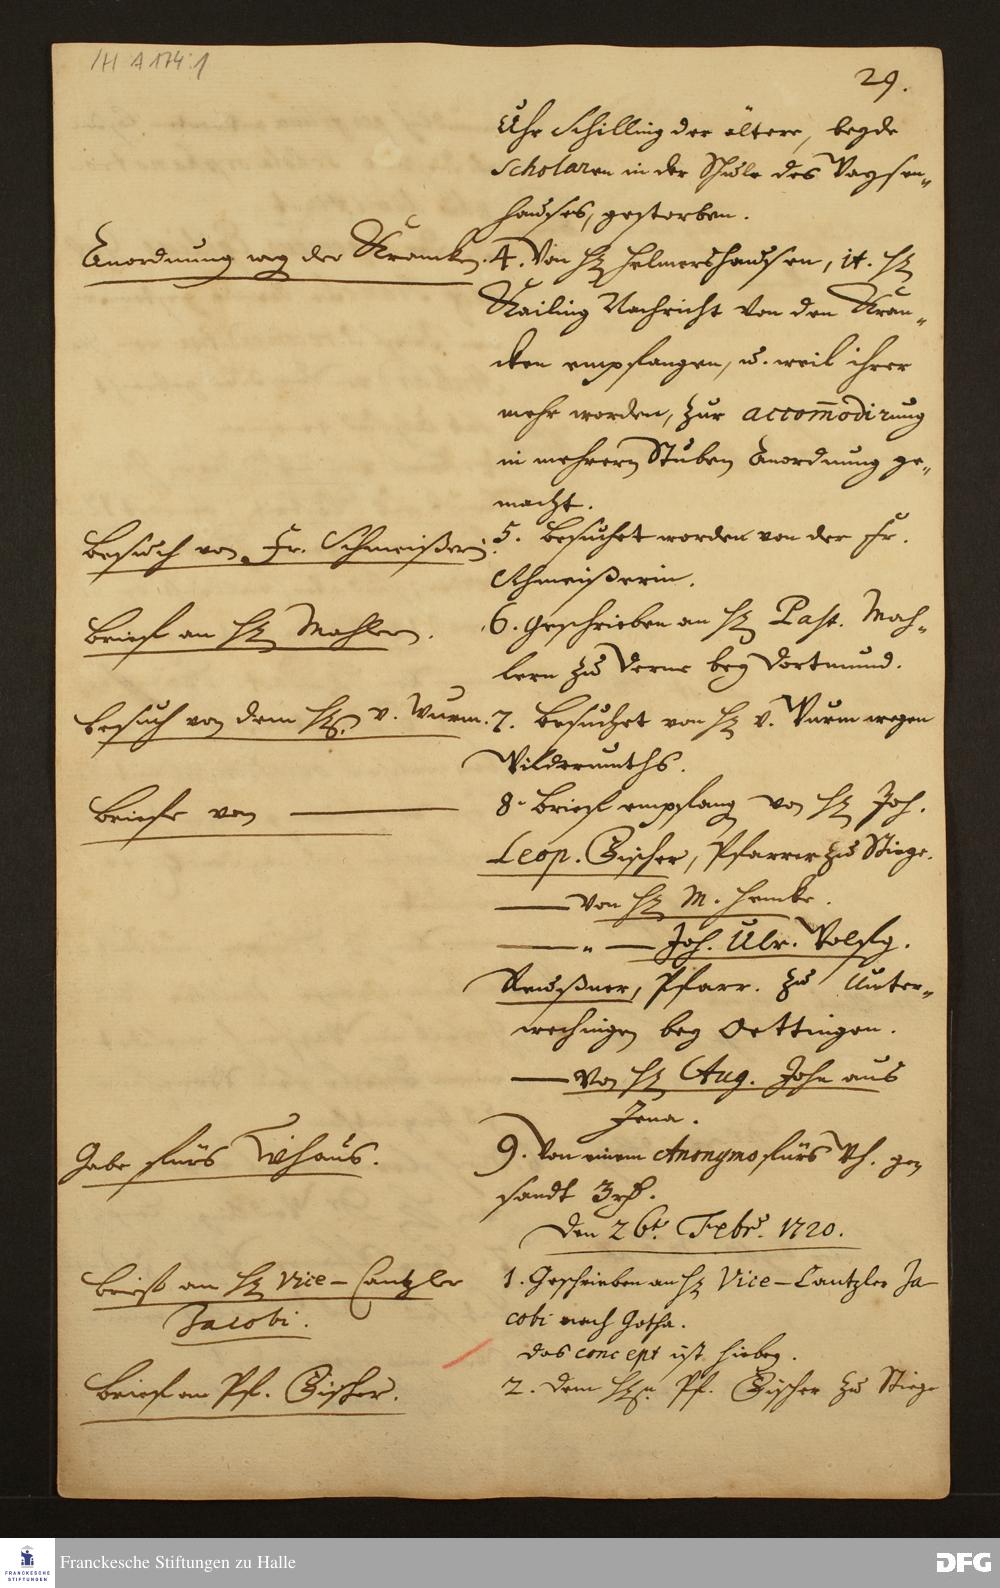 /H A 174:1
29.
Uhr Schilling der ältere, beyde
Scholaren in der Schule des Waysen-
hauses, gestorben.
Anordnung weg der Krancken.
4. Von H. Helmershausen, it. H.
Nachricht von den Kran-
cken empfangen, u. weil ihrer
mehr worden, zur accom̄odirung
in mehrern Stuben Anordnung ge-
macht.
Besuch von Fr. Schmeißerin.
5. Besuchet worden von der Fr.
Schmeißerin.
Brief an H. Mahlern.
6. Geschrieben an H. Past. Mah-
lern zu Derne bey Dortmund.
Besuch von dem H. v. Wurm.
7. Besuchet von H. v. Wurm wegen
Wildermuths.
Briefe von
8. Brief empfang von H. Joh.
Leop. Zischer, Pfarrer zu Stiege.
— Von H. M. Hencke.
— " — Joh. Ulr. Wolfg.
Neußner, Pfarr. zu Unter-
wechingen bey Oettingen.
— Von H. Aug. John aus
Jena.
Gabe fürs Whaus.
9. Von einem Anonymo fürs Wh. ge-
sandt 3 rh.
Den 26t. Febr. 1720.
Brief an H. Vice-Cantzler
Jacobi.
1. Geschrieben an H. Vice-Cantzler Ja
cobi nach Gotha.
das concept ist hiebey.
Brief an Pf. Zischer.
2. dem H. Pf. Zischer zu Stiege
FRANCKESCHE
STIFTUNGEN
Franckesche Stiftungen zu Halle
DFG